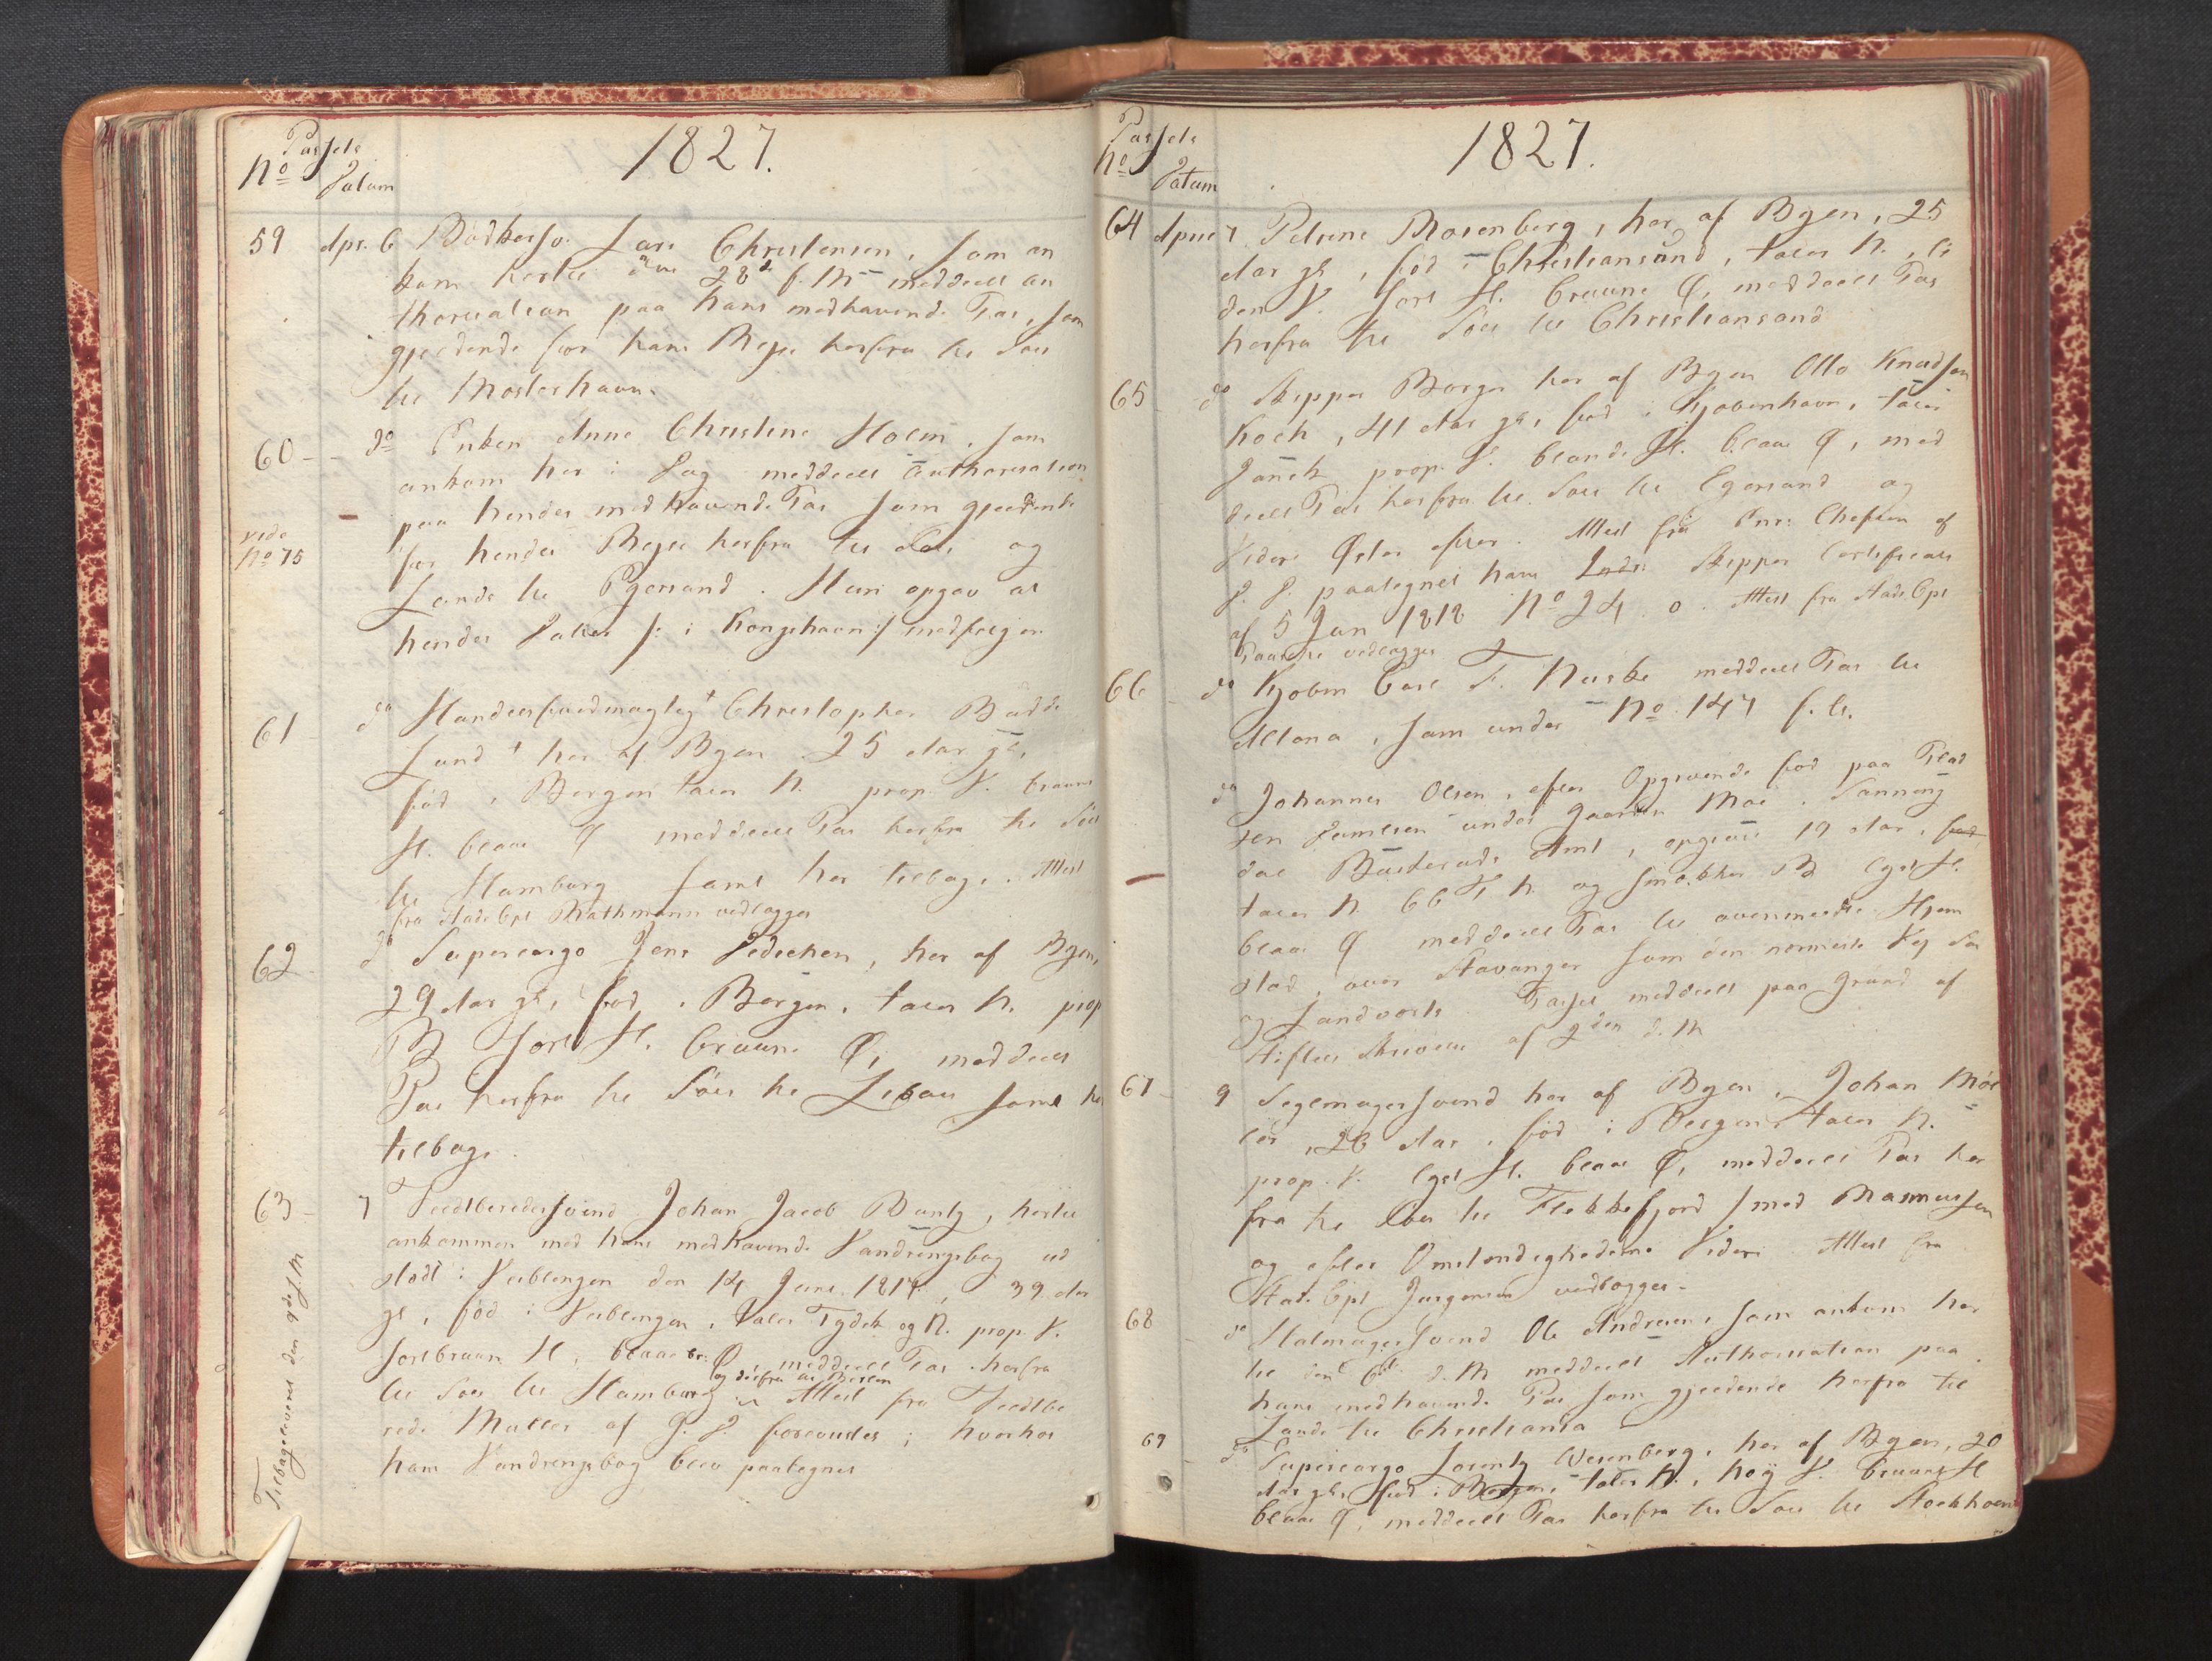 Passets
No Datum
1827.
59 Apr. 6 Bødkersv. Lars Christensen, som an
kom hertil den 28de f. M. meddeelt au
thorisation paa hans medhavende Pas, som
gjeldende for hans Rejse herfra til Søes
til Mosterhavn.
60 - do Enken Anne Christine Holm, som
ankom her i Dag meddeelt Authorisation
paa hendes medhavende Pas som gjeldende
vide
No 75
for hendes Rejse herfra til Søes og
Lands til Egersund. Hun opgav at
hendes Datter /: i Kongshavn :/ medfølger
61 do Handelsfuldmægtig Christopher Budde
Lund her af Byen 25 Aar gl,
fød i Bergen taler N. prop. V. bruunt
H. blaae Ø meddeelt Pas herfra til Søes
til Hamburg samt her tilbage. Attest
fra Stads Cpt Rathmann vedlægges
62 do Supercargo Jens Dedechen, her af Byen,
29 Aar gl, fød i Bergen, taler N. prop
B sort H. bruune Ø, meddeelt
Pas herfra til Søes til Libau samt her
tilbage.
63 - 7 Feldberedersvend Johan Jacob Buntz, hertil
ankommen med hans medhavende Vandringsbog ud
stædt i Veiblingen den 14 Juni 1817, 39 Aar
gl, fød i Veiblingen, taler Tydsk og N. prop. V.
sortbruun H, blaae br: Ø, meddeelt Pas herfra
og derfra til Berlin
til Søes til Hamburg Attest fra Feldbe
reder Møller af G. D. forevistes, hvorhos
hans Vandringsbog blev paategnet
Tilbageleveret den 9de d. M
Passets
No Datum
1827.
64 April 7 Petrine Rosenberg, her af Byen, 25
Aar gl, fød i Christiansund, taler N., li
den V. sort H. bruune Ø, meddeelt Pas
herfra til Søes til Christiansand
65 - do Skipper Borger her af Byen Otto Knudsen
Koch, 41 Aar gl, fød i Kjøbenhavn, taler
Dansk prop. V. blonde H. blaae Ø, med
deelt Pas herfra til Søes til Egersund og
videre Øster efter. Attest fra Enr: Chefen af
G. D. paategnet hans Skipper Certificat
af 5 Jan 1818 No 24. Attest fra Stads Cpt
vedlægges
66 - do Kjøbm Carl F. Huske meddeelt Pas til
Altona, som under No. 147 f. A.
do Johannes Olsen, efter Opgivende fød paa Plad
sen under Gaarden Moe, Sanning
dal Buskeruds Amt, opgivet 19 Aar, fød
taler N. 66 T. h og smekker B lyst H.
blaae Ø meddeelt Pas til ovenmeldte Hjem
sted, over Stavanger som den nærmeste Vej Søe
og Landværts. Passet meddeelt paa Grund af
Stiftets Skrivelse af 2den d. M
67 - 9 Segelmagersvend her af Byen, Johan Møl
ler, 26 Aar, fød i Bergen taler N.
prop. V. lyst H. blaae Ø, meddeelt Pas her
fra til Søes til Flekkefjord /med Rasmussen
og efter Omstændighederne Videre. Attest fra
Stads Cpt Jørgensen vedlægges -
68 - do Hatmagersvend Ole Andresen, som ankom her
til den 6te d. M meddeelt Authorisation paa
hans medhavende Pas som gjeldende herfra til
Lands til Christiania
69 - do Supercargo Lorentz Wesenberg, her af Byen, 20
Aar gl, fød i Bergen, taler N., høy V. bruunt H
blaae Ø, meddeelt Pas herfra til Søes til Stockholm